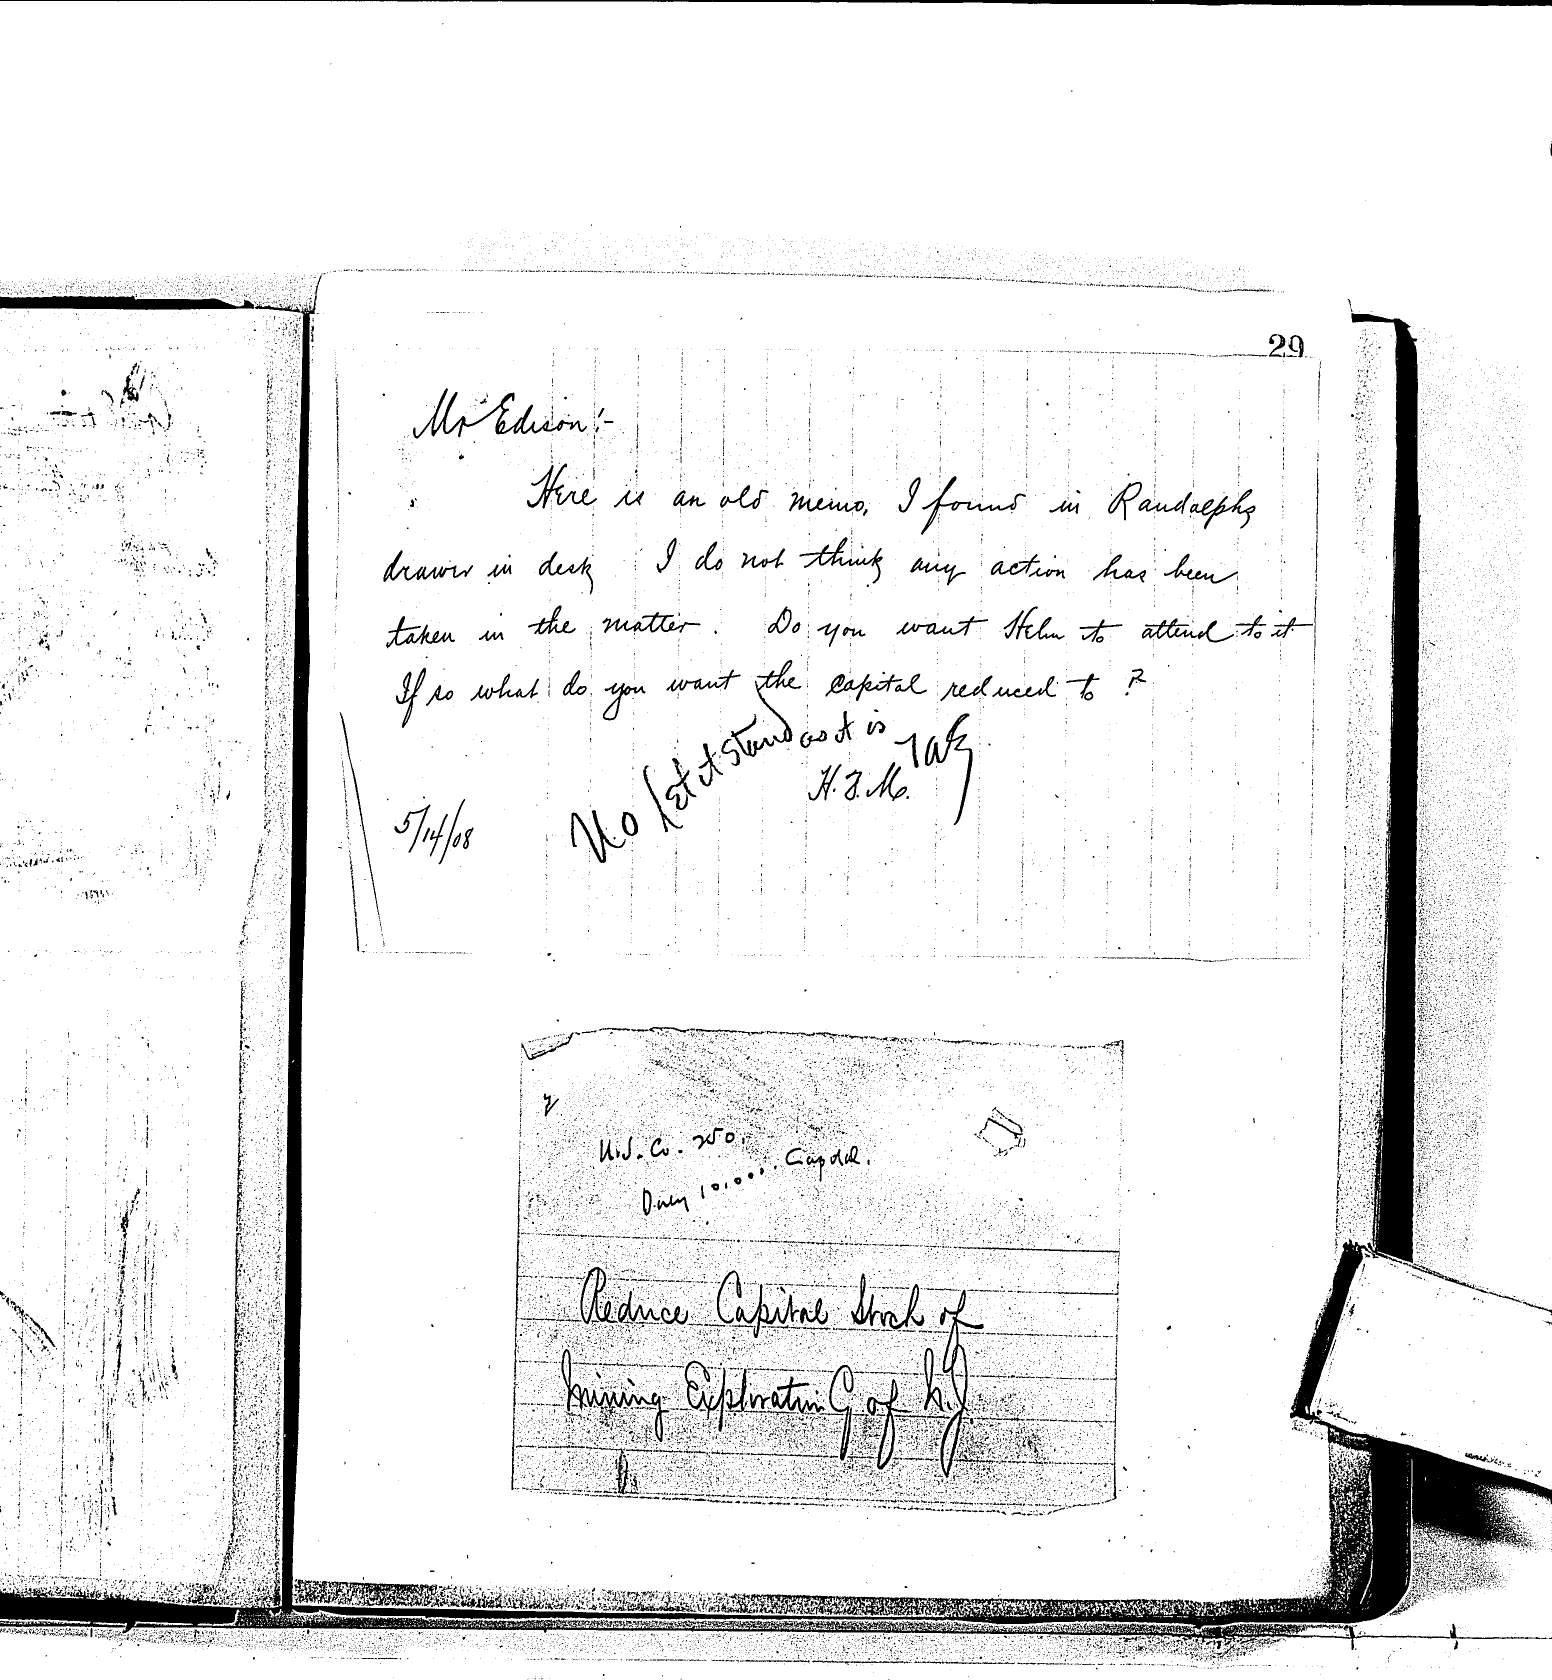 29
Mr Edison:-
Here is an old memo, I found in Randolphs
drawer in desk I do not think any action has been
taken in the matter. Do you want Helm to attend to it
If so what do you want the capital reduced to ?
No Let it stand as it is
H.F.M.
5/14/08
N.J. Co. 250.
Only 10,000. Capital.
Reduce Capital Stock of
Mining Exploration Co of N.J.